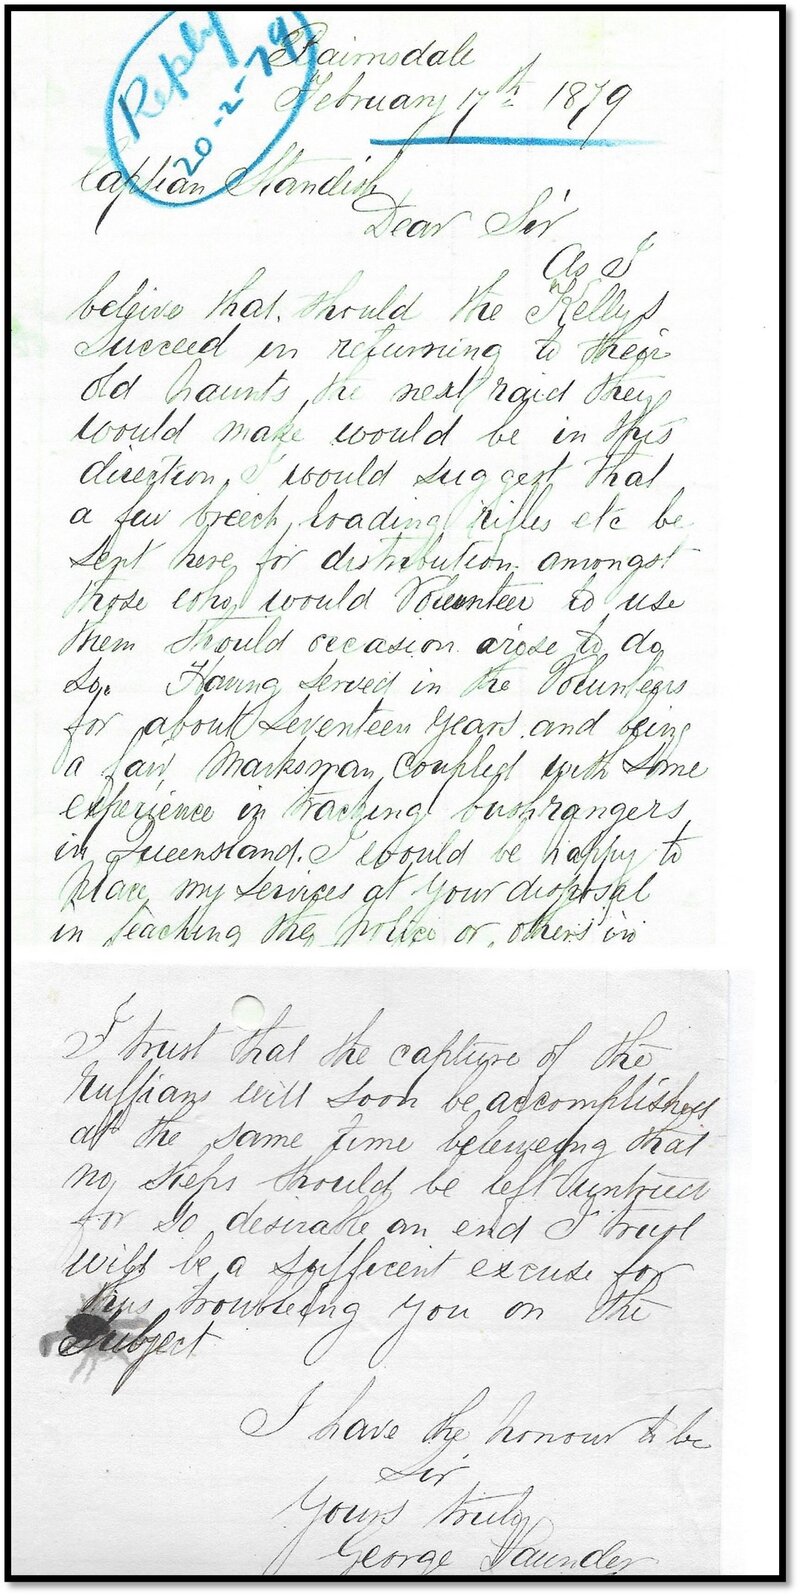 Reply
20-2-79
Bairnsdale
February 17th 1879
Captian Standish
Dear Sir
As I
beleive that should the Kellys
succeed in returning to their
old haunts, the next raid they
would make would be in this
direction, I would suggest that
a few breech loading rifles etc be
sent here for distribution amongst
those who would Volunteer to use
them should occasion arose to do
so. Having served in the Volunteers
for about seventeen years and being
a fair Marksman, coupled with some
experience in tracking bushrangers
in Queensland. I would be happy to
place my services at your disposal
in teaching the Police or others in
I trust that the capture of the
ruffians will soon be accomplished
at the same time beleiveing that
no steps should be left untried
for so desirable an end I trust
will be a sufficent excuse for
thus troubleing you on the
subject
I have the honour to be
Sir
Yours truly
George Saunder